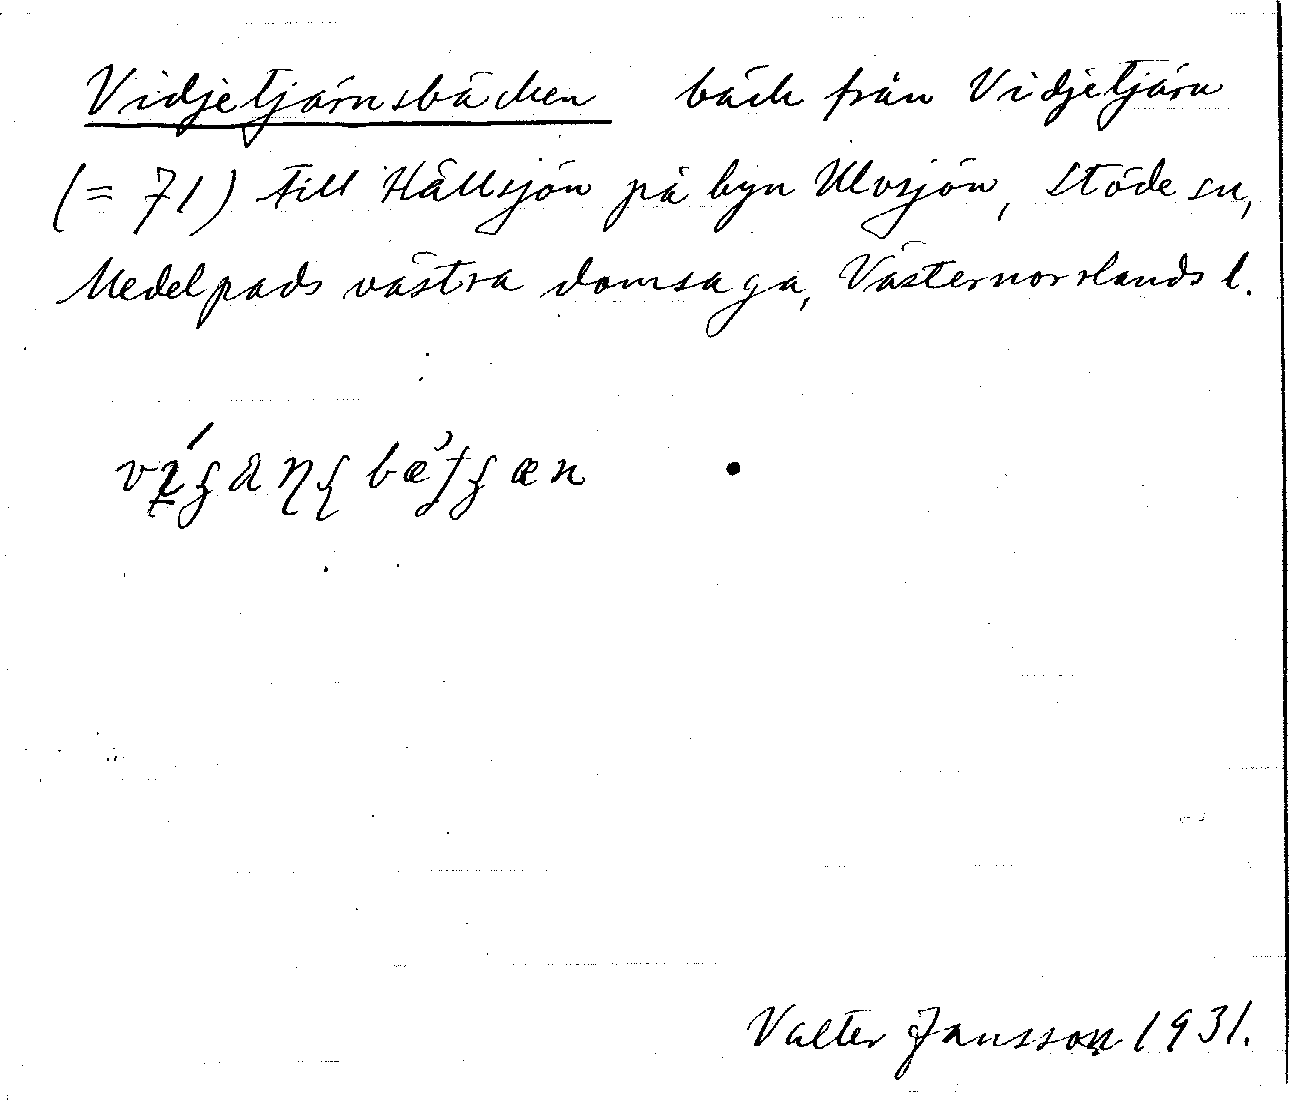 Vidjetjärnsbäcken bäck från Vidjetjärn
(= 71) till Hällsjön på byn Ulvsjön, Stöde sn,
Medelpads västra domsaga, Västernorrlands l.
Valter Jansson 1931.